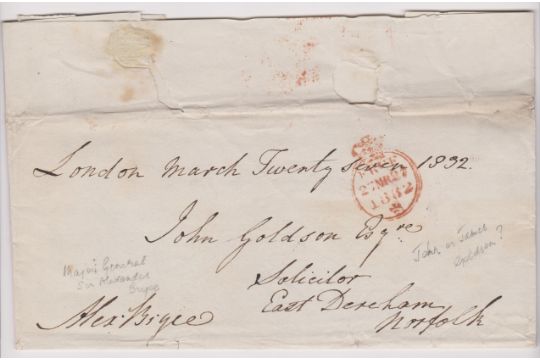 London March Twenty seven 1832.
FREE
27MR27
1832
John Goldson Esqre
Solicitor
East Dereham
Norfolk
Major General
Sir Alexander
Bryce
John or James
Goldson?
Alex: Bryce